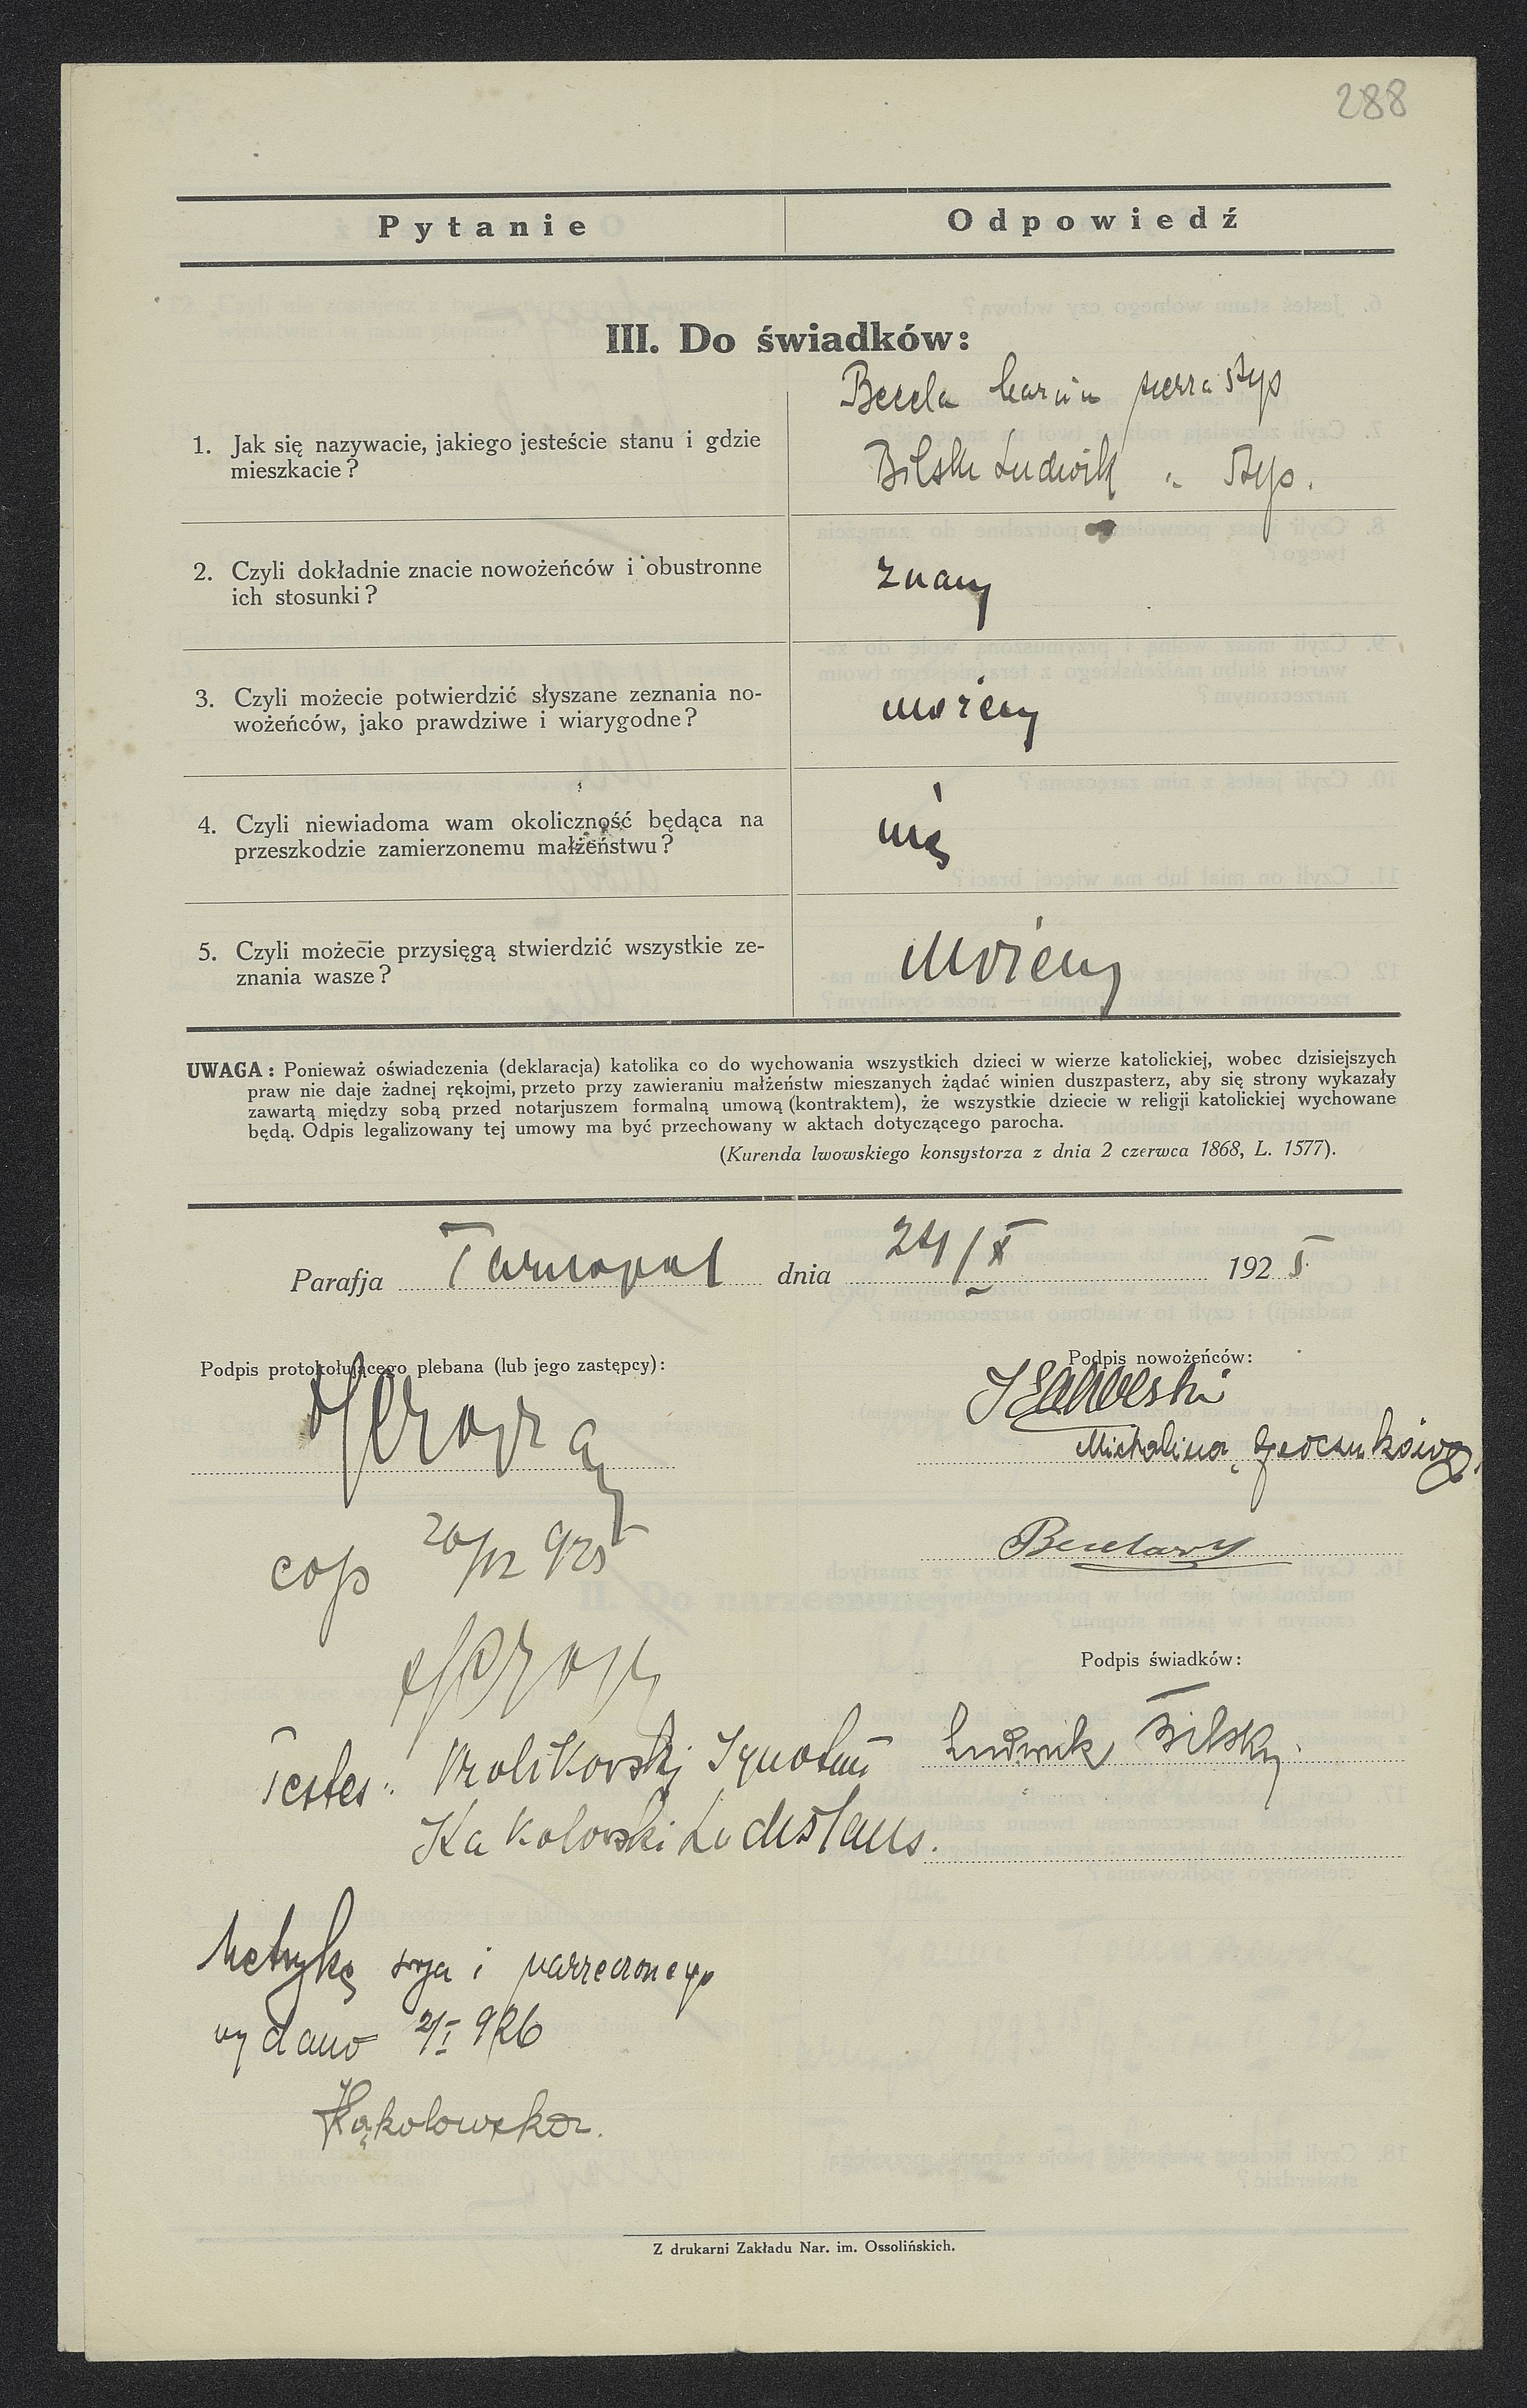 288
Pytanie
Odpowiedź
III. Do świadków:
1. Jak się nazywacie, jakiego jesteście stanu i gdzie
mieszkacie?
Bilski Ludwik "
2. Czyli dokładnie znacie nowożeńców i obustronne
ich stosunki?
znamy
3. Czyli możecie potwierdzić słyszane zeznania no-
wożeńców, jako prawdziwe i wiarygodne?
możemy
4. Czyli niewiadoma wam okoliczność będąca na
przeszkodzie zamierzonemu małżeństwu?
nie
5. Czyli możecie przysięgą stwierdzić wszystkie ze-
znania wasze?
Możemy
UWAGA: Ponieważ oświadczenia (deklaracja) katolika co do wychowania wszystkich dzieci w wierze katolickiej, wobec dzisiejszych
praw nie daje żadnej rękojmi, przeto przy zawieraniu małżeństw mieszanych żądać winien duszpasterz, aby się strony wykazały
zawartą między sobą przed notarjuszem formalną umową (kontraktem), że wszystkie dziecie w religji katolickiej wychowane
będą. Odpis legalizowany tej umowy ma być przechowany w aktach dotyczącego parocha.
(Kurenda lwowskiego konsystorza z dnia 2 czerwca 1868, L. 1577).
Parafja Tarnopol dnia 24/X 1925
Podpis protokołującego plebana (lub jego zastępcy):
Podpis nowożeńców:
Michalina
cop 26/12 925
Podpis świadków:
Ludwik Bilski
Testes: Krolikowski Ignatius
Kakolowski Ladislaus.
Metrykę swja i narzeczonego
wydano 2/I 926
Kąkolowska.
Z drukarni Zakładu Nar. im. Ossolińskich.